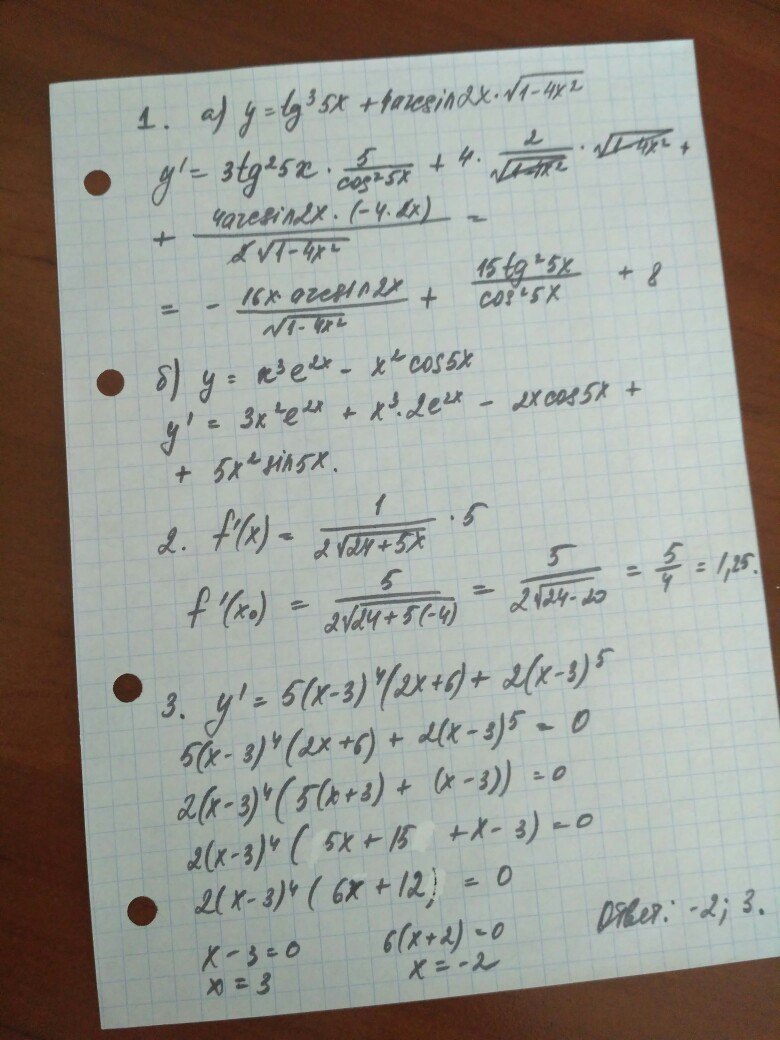 1. а) y = tg³5x + 4arcsin2x · √(1-4x²)
y' = 3tg²5x · 5/cos²5x + 4 · 2/√(1-4x²) · √(1-4x²) +
+ 4arcsin2x · (-4·2x)/2√(1-4x²) =
= - 16x·arcsin2x/√(1-4x²) + 15tg²5x/cos²5x + 8
б) y = x³e^(2x) - x²cos5x
y' = 3x²e^(2x) + x³·2e^(2x) - 2xcos5x +
+ 5x²sin5x.
2. f'(x) = 1/2√(24+5x) · 5
f'(x₀) = 5/2√(24+5(-4)) = 5/2√(24-20) = 5/4 = 1,25.
3. y' = 5(x-3)⁴(2x+6) + 2(x-3)⁵
5(x-3)⁴(2x+6) + 2(x-3)⁵ = 0
2(x-3)⁴(5(x+3) + (x-3)) = 0
2(x-3)⁴(5x+15 +x-3) = 0
2(x-3)⁴(6x+12) = 0
x-3=0 6(x+2)=0
x=3 x=-2
Ответ: -2; 3.